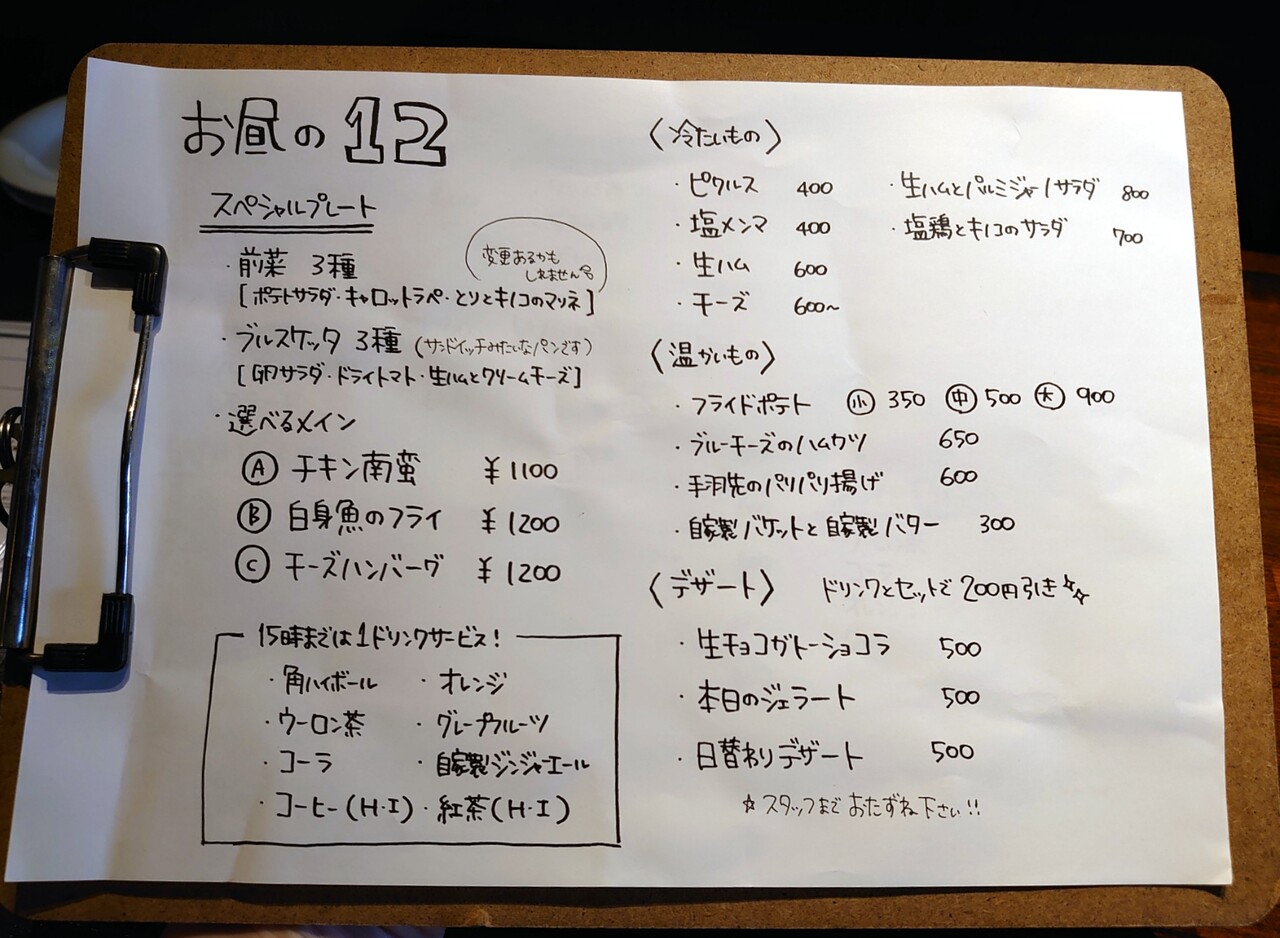 お昼の12
スペシャルプレート
・前菜 3種
変更あるかも
しれません
[ポテトサラダ・キャロットラペ・とりとキノコのマリネ]
・ブルスケッタ 3種 (サンドイッチみたいなパンです)
[卵サラダ・ドライトマト・生ハムとクリームチーズ]
・選べるメイン
Ⓐ チキン南蛮 ¥1100
Ⓑ 白身魚のフライ ¥1200
Ⓒ チーズハンバーグ ¥1200
15時までは1ドリンクサービス!
・角ハイボール ・オレンジ
・ウーロン茶 ・グレープフルーツ
・コーラ ・自家製ジンジャーエール
・コーヒー(H・I) ・紅茶(H・I)
〈冷たいもの〉
・ピクルス 400 ・生ハムとパルミジャーノサラダ 800
・塩メンマ 400 ・塩鶏とキノコのサラダ 700
・生ハム 600
・チーズ 600~
〈温かいもの〉
・フライドポテト ㊥小 350 ㊥ 500 大 900
・ブルーチーズのハムカツ 650
・手羽先のパリパリ揚げ 600
・自家製バケットと自家製バター 300
〈デザート〉 ドリンクとセットで200円引き☆☆
・生チョコガトーショコラ 500
・本日のジェラート 500
・日替わりデザート 500
☆スタッフまでおたずね下さい!!